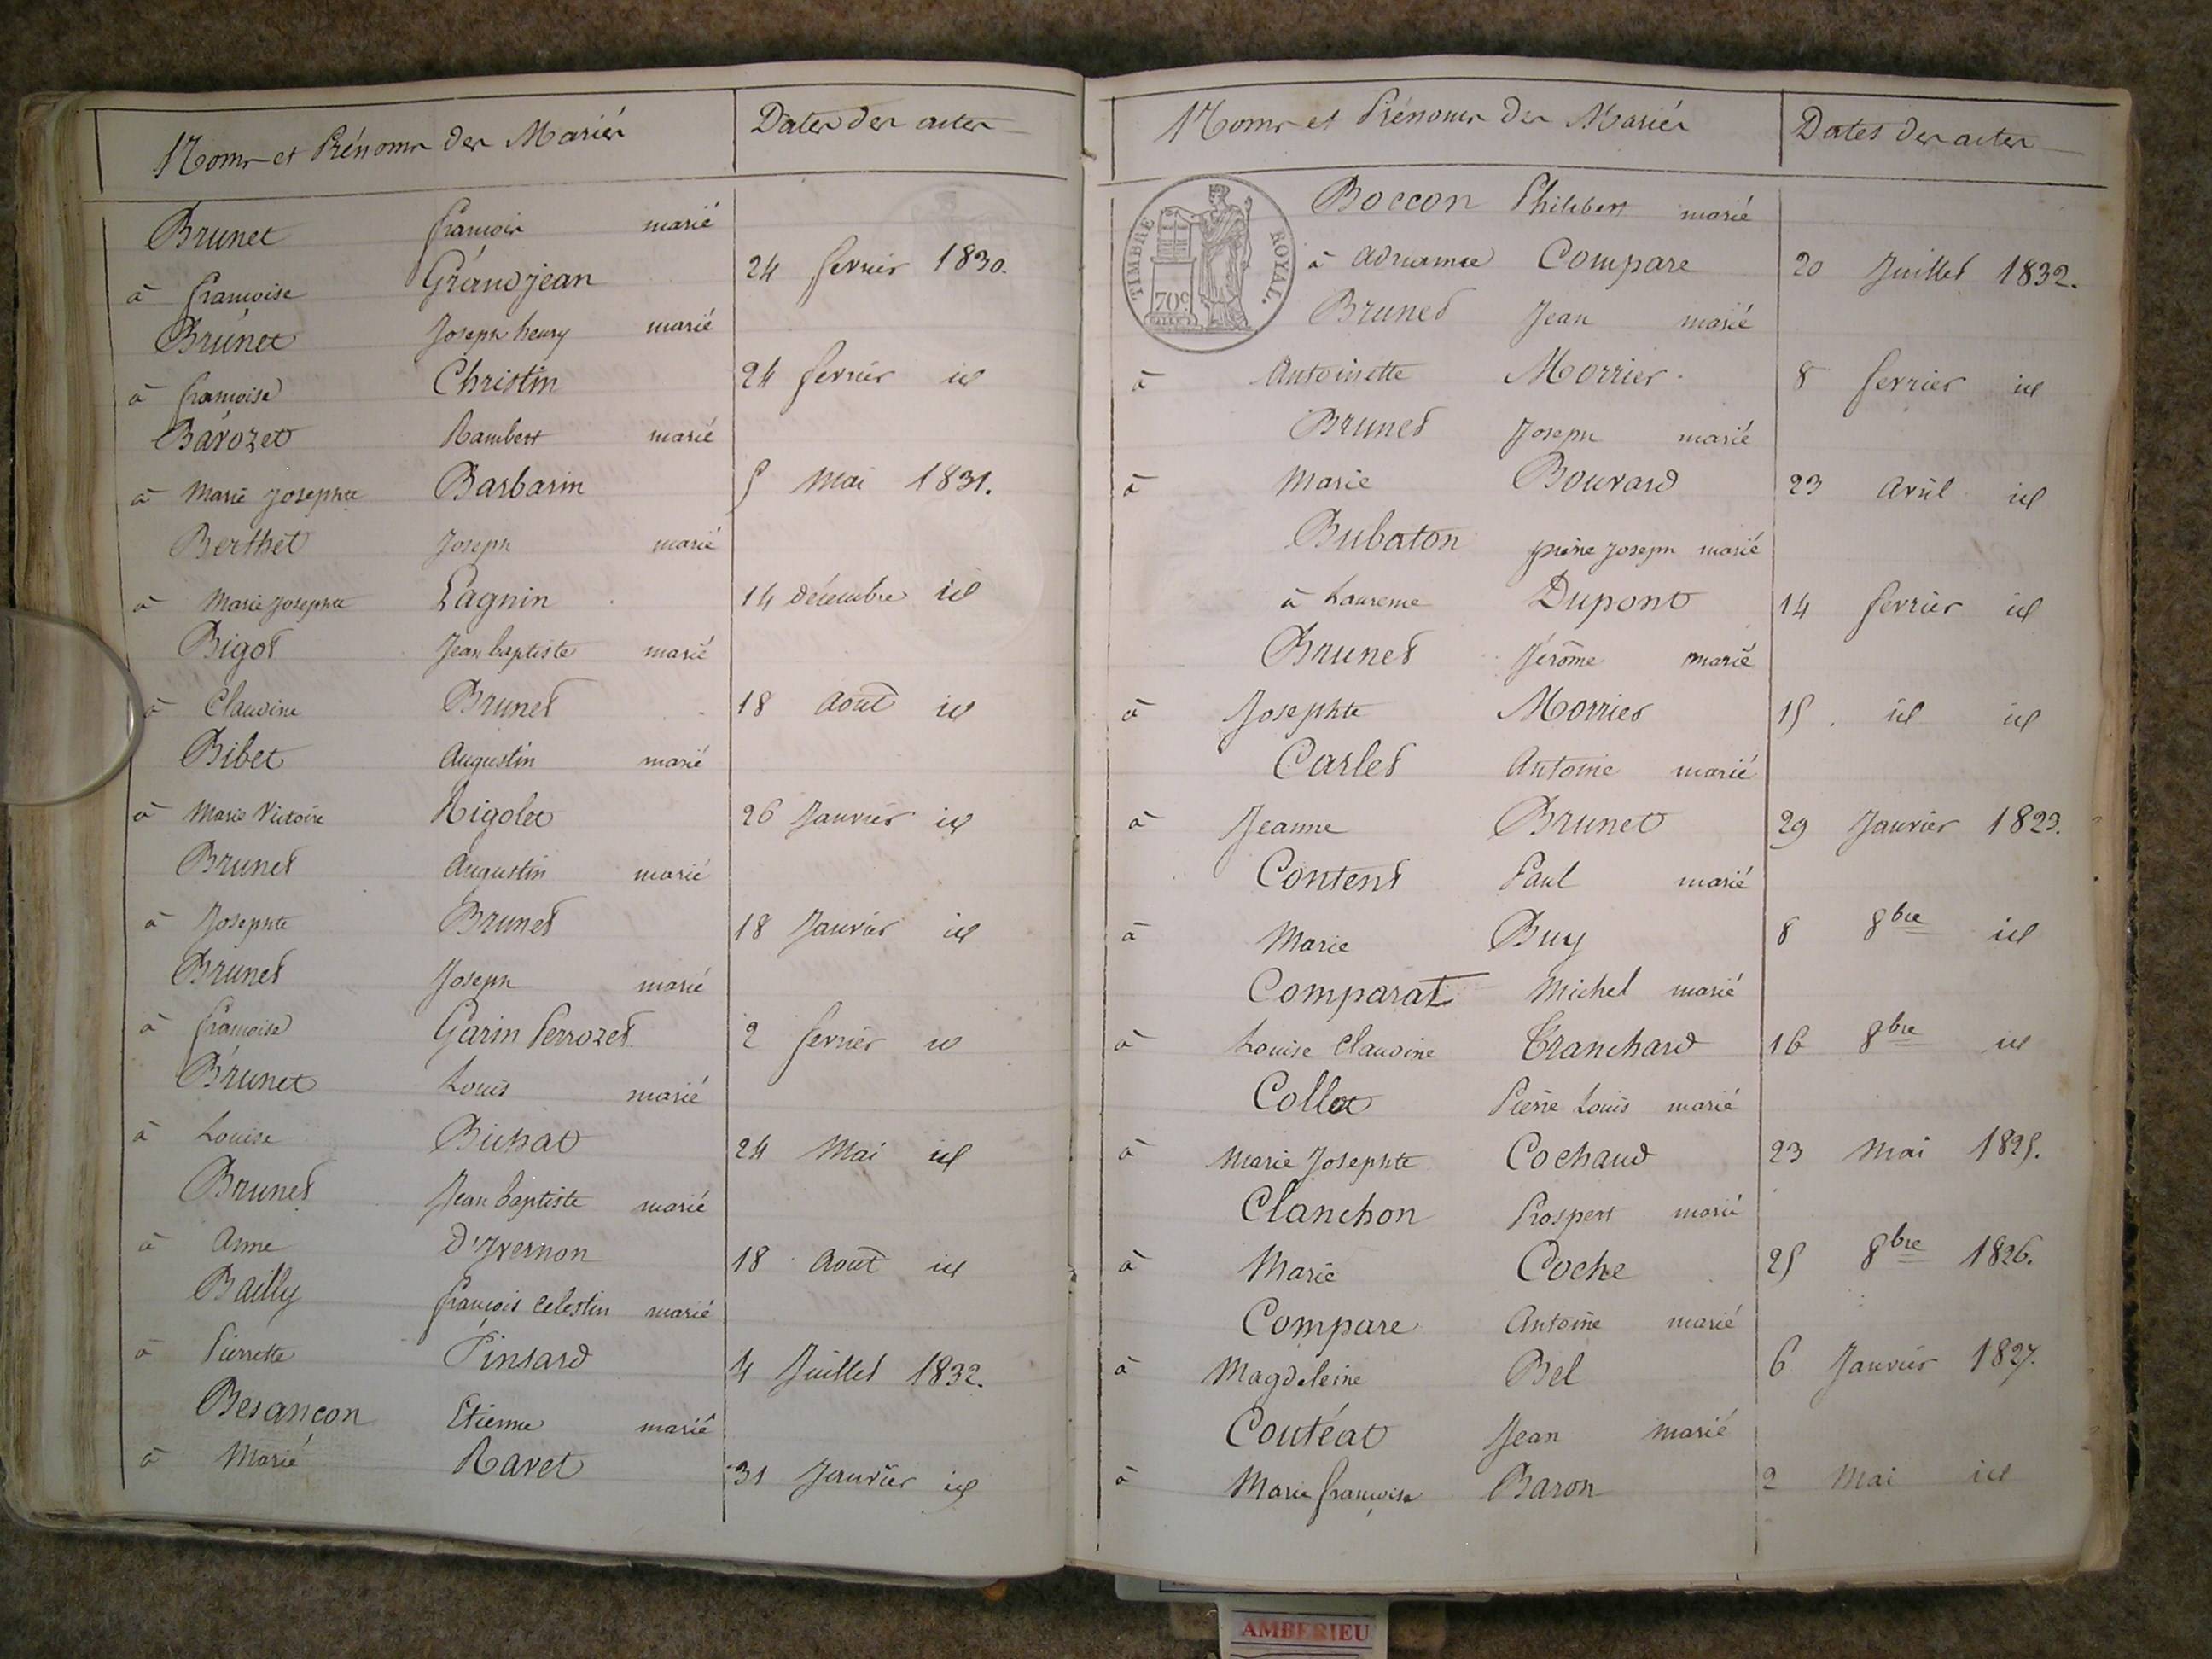 Noms et Prénoms des Mariés Dates des actes
Brunet françois marié
à françoise Grandjean 24 fevrier 1830.
Brunet Joseph henry marié
à françoise Christin 24 fevrier id
Barozet Rambert marié
à Marie Josephte Barbarin 5 Mai 1831.
Berthet Joseph marié
à Marie Josephte Pagnin 14 décembre id
Bigot Jean baptiste marié
à Claudine Brunet 18 Aout id
Bibet Augustin marié
à Marie Victoire Rigolet 26 Janvier id
Brunet Augustin marié
à Josephte Brunet 18 Janvier id
Brunet Joseph marié
à françoise Garin Perrozet 2 fevrier id
Brunet Louis marié
à Louise Bichat 24 Mai id
Brunet Jean baptiste marié
à Anne d'Yvernon 18 Aout id
Bailly françois celestin marié
à Pierrette Pinsard 4 Juillet 1832.
Besançon Etienne marié
à Marie Ravet 31 Janvier id
Noms et Prénoms des Mariés Dates des actes
TIMBRE ROYAL.
70c
Boccon Philibert marié
à Compare 20 Juillet 1832.
Brunet Jean marié
à Antoinette Morrier 8 fevrier id
Brunet Joseph marié
à Marie Bouvard 23 Avril id
Bubaton pierre Joseph marié
à Laurence Dupont 14 fevrier id
Brunet Jérôme marié
à Josephte Morrier 15 id id
Carlet Antoine marié
à Jeanne Brunet 29 Janvier 1823.
Content Paul marié
à Marie Buy 8 8bre id
Comparat Michel marié
à Louise Claudine Tranchard 16 8bre id
Collet Pierre Louis marié
à Marie Josephte Cochaud 23 Mai 1825.
Clanchon Prospert marié
à Marie Coche 25 8bre 1826.
Compare Antoine marié
à Magdeleine Bel 6 Janvier 1827.
Coutéat Jean marié
à Marie françoise Baron 2 Mai id
AMBERIEU